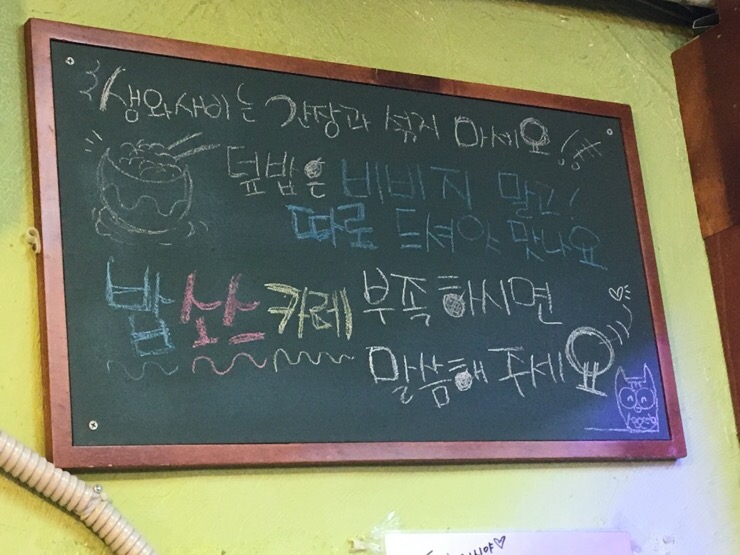 생와사비는 간장과 섞지 마세요!!
덮밥은 비비지 말고!
따로 드셔야 맛나요
밥 소스 카레 부족하시면
말씀해 주세요